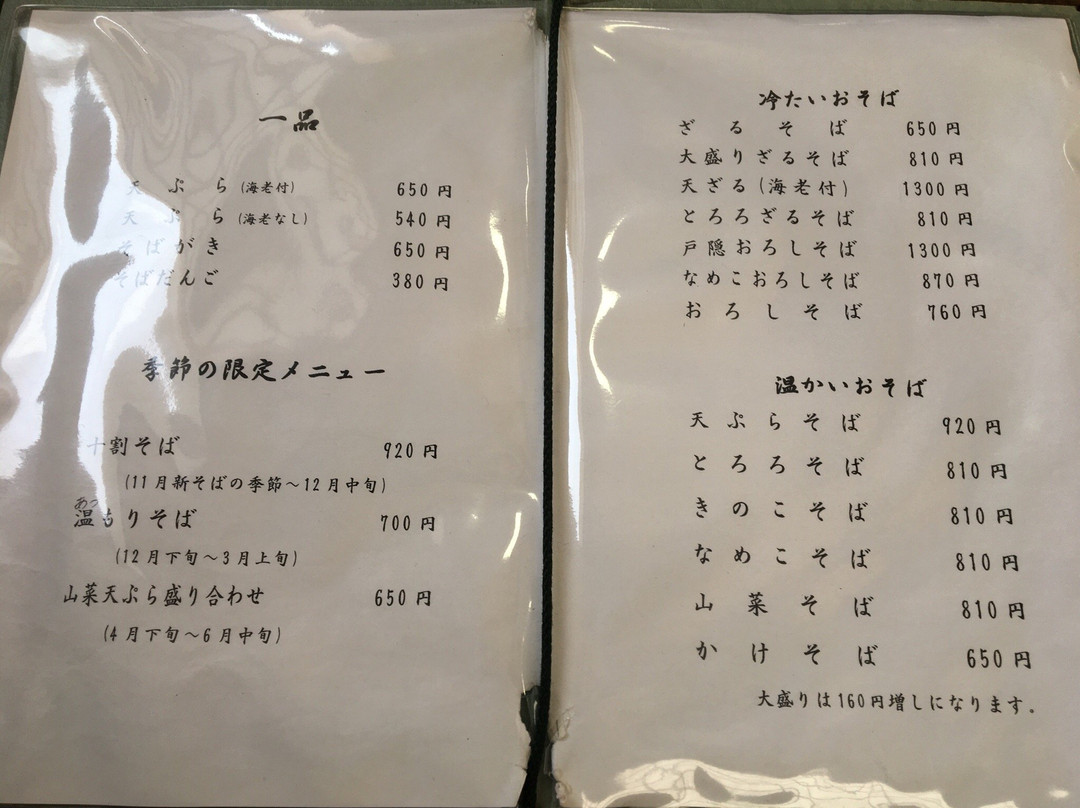 一品
天ぷら(海老付) 650円
天ぷら(海老なし) 540円
そばがき 650円
そばだんご 380円
季節の限定メニュー
十割そば 920円
(11月新そばの季節～12月中旬)
あつ
温もりそば 700円
(12月下旬～3月上旬)
山菜天ぷら盛り合わせ 650円
(4月下旬～6月中旬)
冷たいおそば
ざるそば 650円
大盛りざるそば 810円
天ざる(海老付) 1300円
とろろざるそば 810円
戸隠おろしそば 1300円
なめこおろしそば 870円
おろしそば 760円
温かいおそば
天ぷらそば 920円
とろろそば 810円
きのこそば 810円
なめこそば 810円
山菜そば 810円
かけそば 650円
大盛りは160円増しになります。